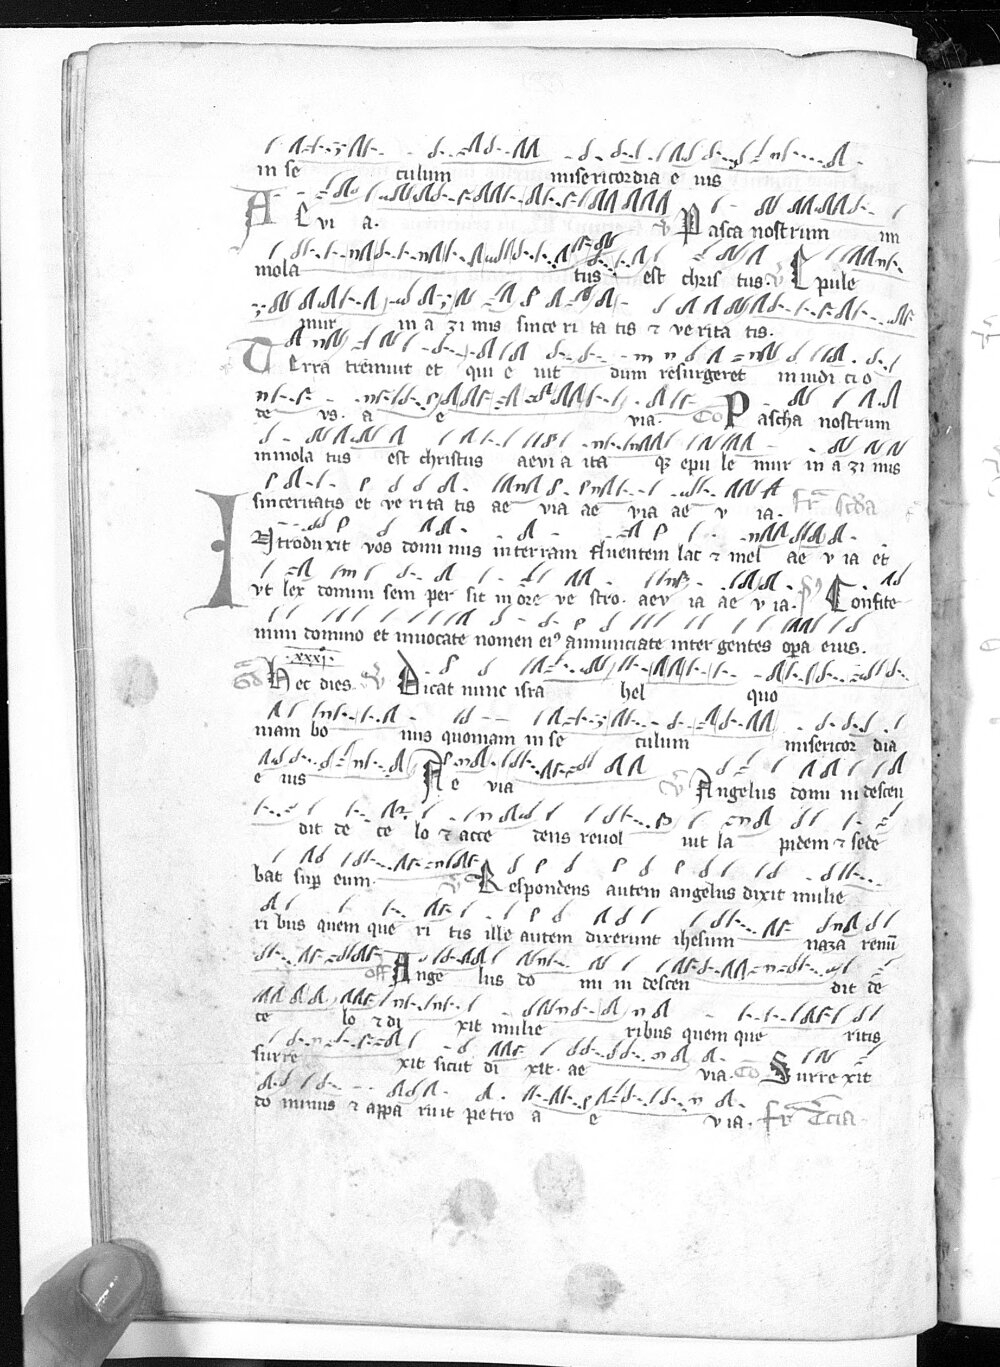 in se culum misericordia e ius
A L vi a. V Pasca nostrum im
mola tus est chris tus. V Epule
mur in a zi mis since ri ta tis ⁊ ve rita tis.
Terra tremuit et qui e uit dum resurgeret in iudi ci o
de vs. a e via. Co Pascha nostrum
inmola tus est christus aevi a ita qȝ epu le mur in a zi mis
sinceritatis et ve ri ta tis ae via ae via ae v ia. fr̄ scđa
Introduxit vos domi nus in terram fluentem lac ⁊ mel ae v ia et
vt lex domini sem per sit in ore ve stro. aev ia ae v ia. ps Confite
mini domino et inuocate nomen ei⁹ annunciate inter gentes opa eius.
.xxxj.
Gd Hec dies V Dicat nunc isra hel quo
niam bo nus quoniam in se culum misericor dia
e ius Ae via V Angelus domi ni descen
dit de ce lo ⁊ acce dens reuol uit la pidem ⁊ sede
bat sup eum. V Respondens autem angelus dixit mulie
ri bus quem que ri tis ille autem dixerunt ihesum naza renū
off Ange lus do mi ni descen dit de
ce lo ⁊ di xit mulie ribus quem que ritis
surre xit sicut di xit. ae via. Co Surre xit
do minus ⁊ appa ruit petro a e v ia. fr̄ t̄cia